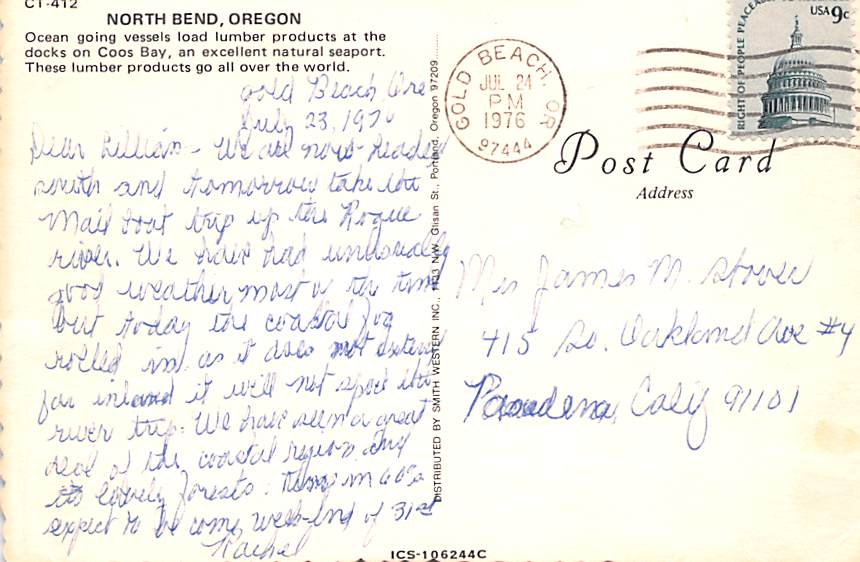 CT-412
NORTH BEND, OREGON
Ocean going vessels load lumber products at the
docks on Coos Bay, an excellent natural seaport.
These lumber products go all over the world.
Gold Beach Ore
July 23, 1976
Dear Lillian - We are now headed
south and tomorrow take the
Mail boat trip up the Rogue
river. We have had unusually
good weather most of the time
but today the coastal fog
rolled in. as it does not extend
far inland it will not spoil the
river trip. We have seen a great
deal of the coastal region and
its lovely forests. Temps in 60°s
expect to be home week-end of 31st
Rachel
DISTRIBUTED BY SMITH WESTERN INC., 1133 N.W. Glisan St., Portland, Oregon 97209
GOLD BEACH, OR
JUL 24
PM
1976
97444
RIGHT OF PEOPLE PEACEABLY TO ASSEMBLE
USA 9c
Post Card
Address
Mrs James M. Stover
415 So. Oakland Ave #4
Pasadena, Calif 91101
ICS-106244C